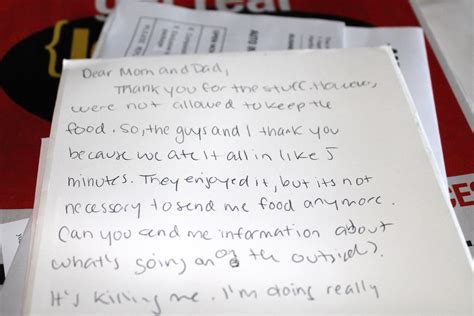 Dear Mom and Dad,
Thank you for the stuff. However,
were not allowed to keep the
food. So, the guys and I thank you
because we ate it all in like 5
minutes. They enjoyed it, but its not
necessary to send me food anymore.
Can you send me information about
what's going on on the outside?
It's killing me. I'm doing really